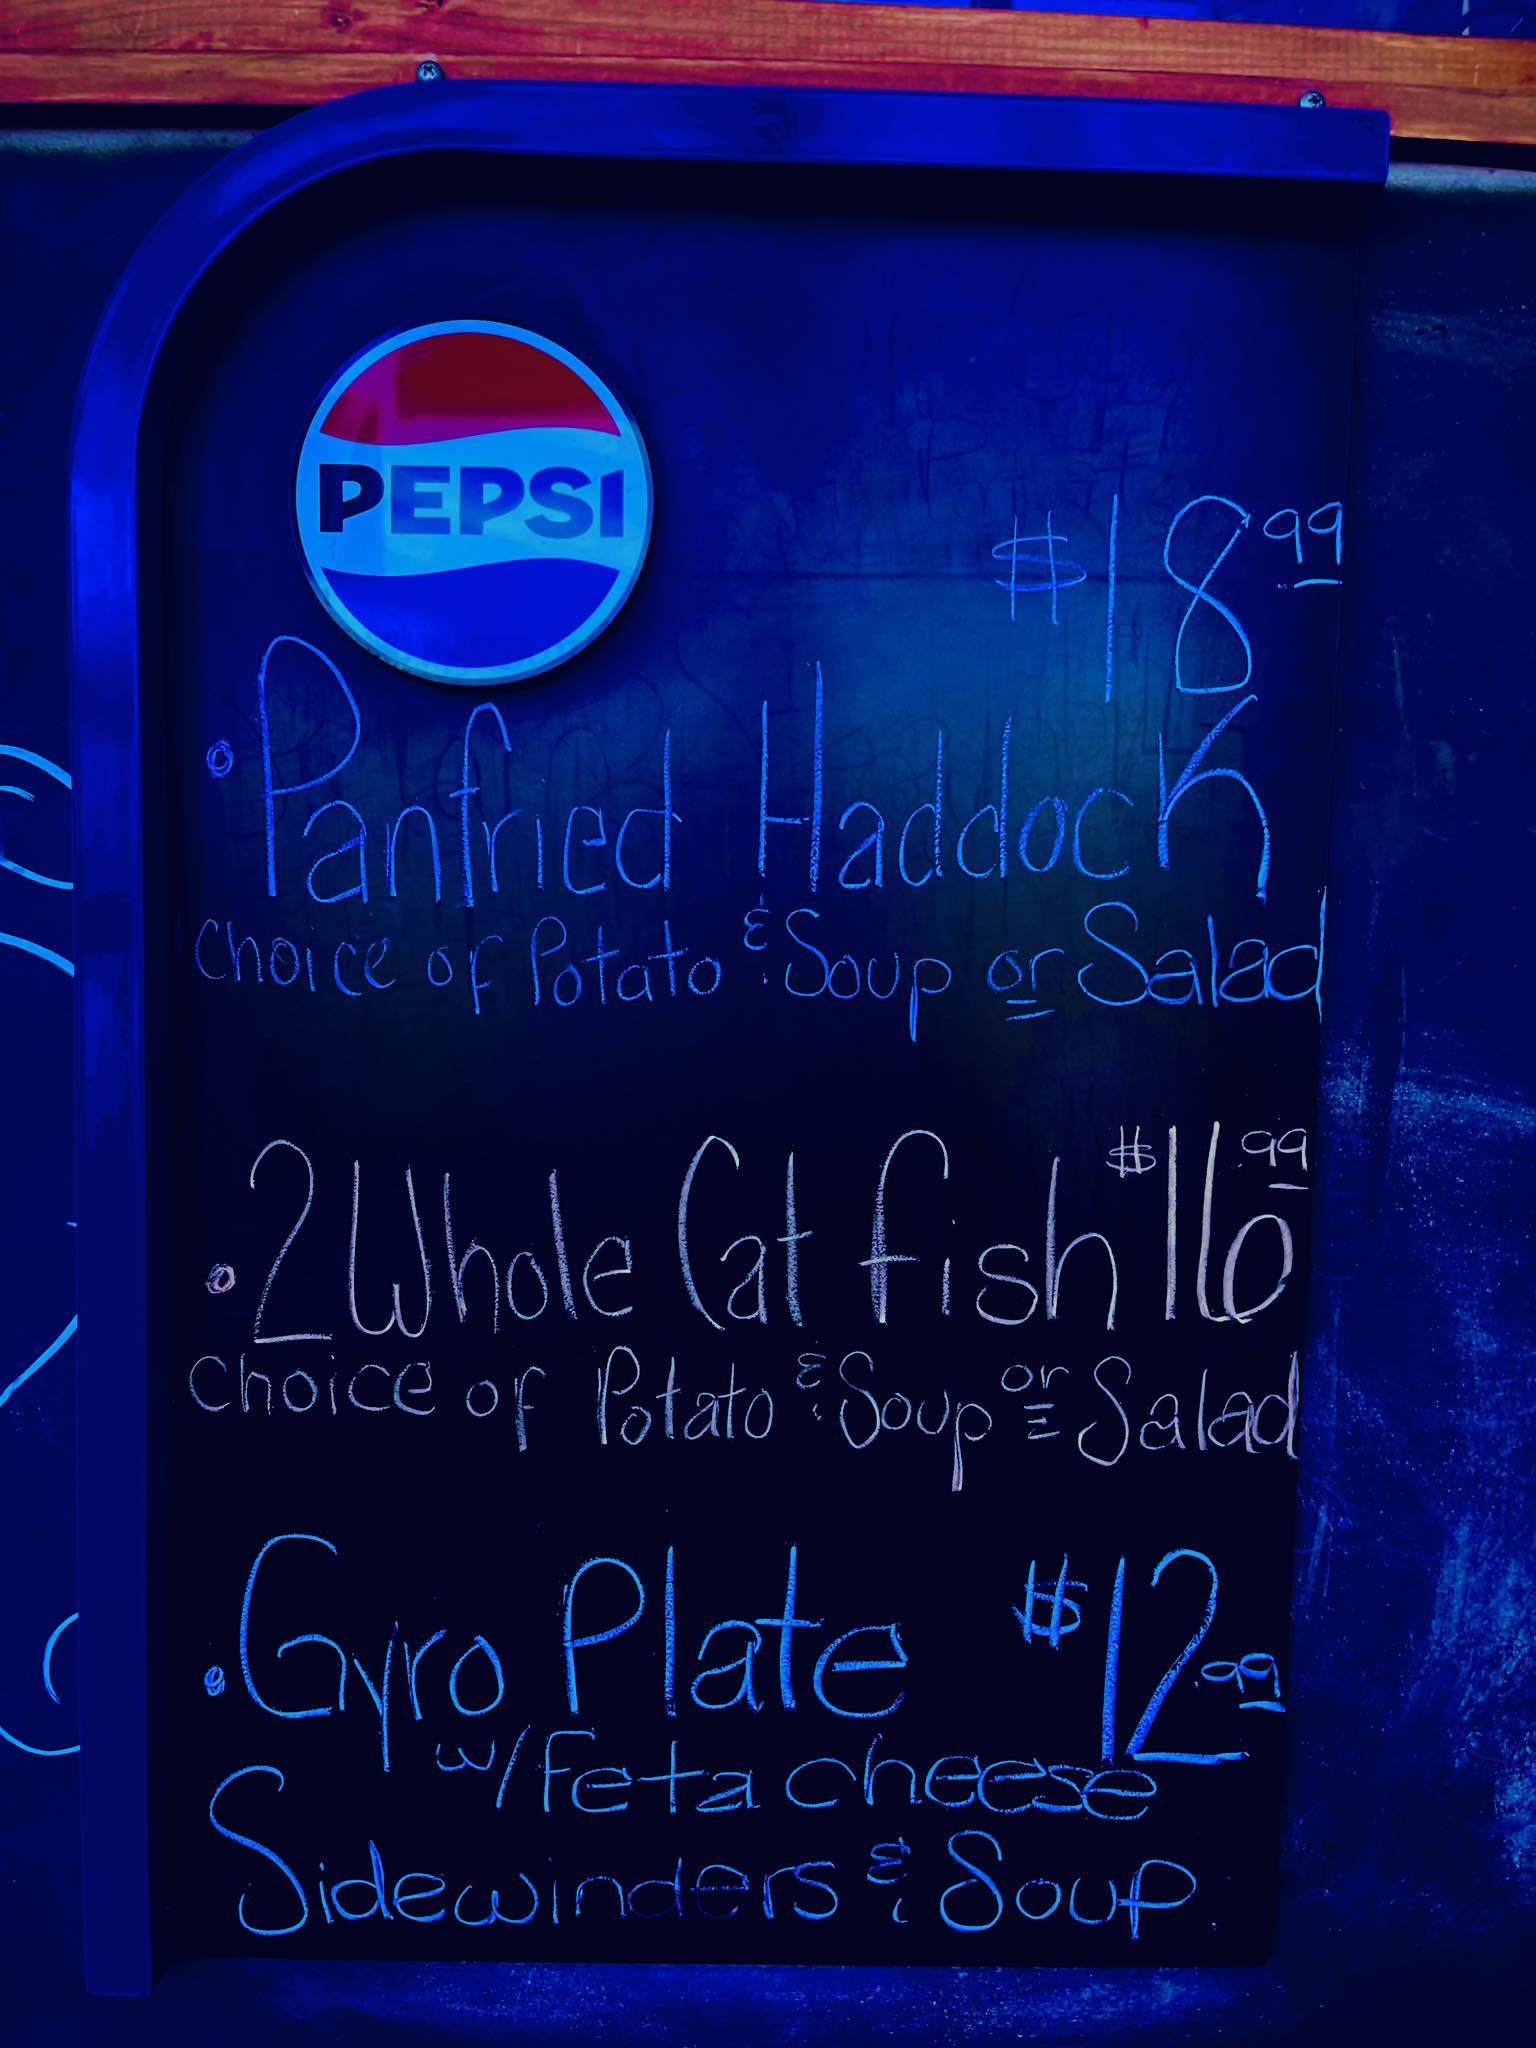 PEPSI
$18.99
• Panfried Haddock
Choice of Potato & Soup or Salad
• 2 Whole Cat Fish $16.99
Choice of Potato & Soup or Salad
• Gyro Plate $12.99
w/ Feta cheese
Sidewinders & Soup